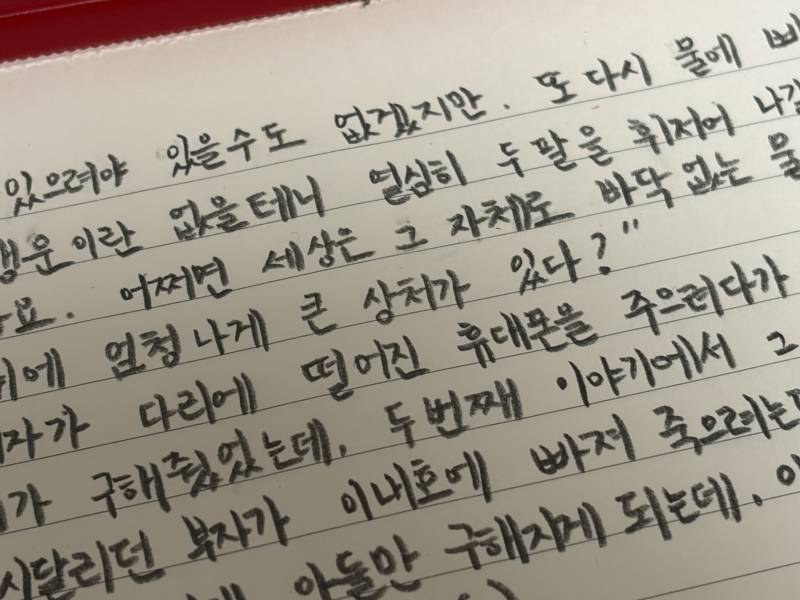 있으려야 있을수도 없겠지만. 또 다시 물에
행운이란 없을테니 열심히 두 팔을 휘저어
어쩌면 세상은 그 자체로 바닥 없는 물
엄청나게 큰 상처가 있다?"
다리에 떨어진 휴대폰을 주으려다가
구해줬었는데, 두번째 이야기에서 그
시달리던 부자가 이내호에 빠져 죽으려는
아들만 구해지게 되는데,